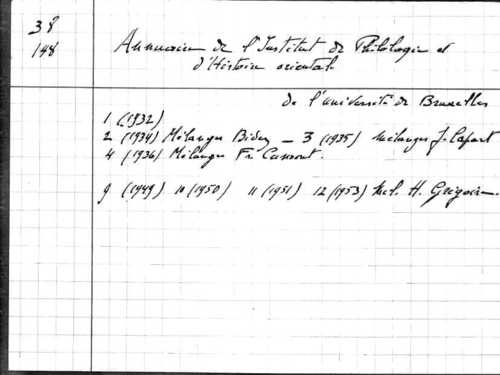 38
148
Annuaire de l'Institut de Philologie et
d'Histoire orientale
de l'université de Bruxelles
1 (1932)
2 (1934) Mélanges Bidez — 3 (1935) Mélanges J. Capart
4 (1936) Mélanges Fr. Cumont.
9 (1949) 10 (1950) 11 (1951) 12 (1953) Mél. H. Grégoire.